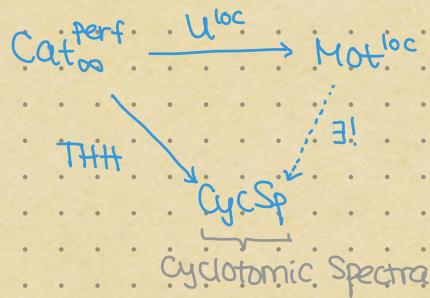 U^loc
Cat_∞^perf → Mot^loc
∃!
THH
CycSp
Cyclotomic Spectra